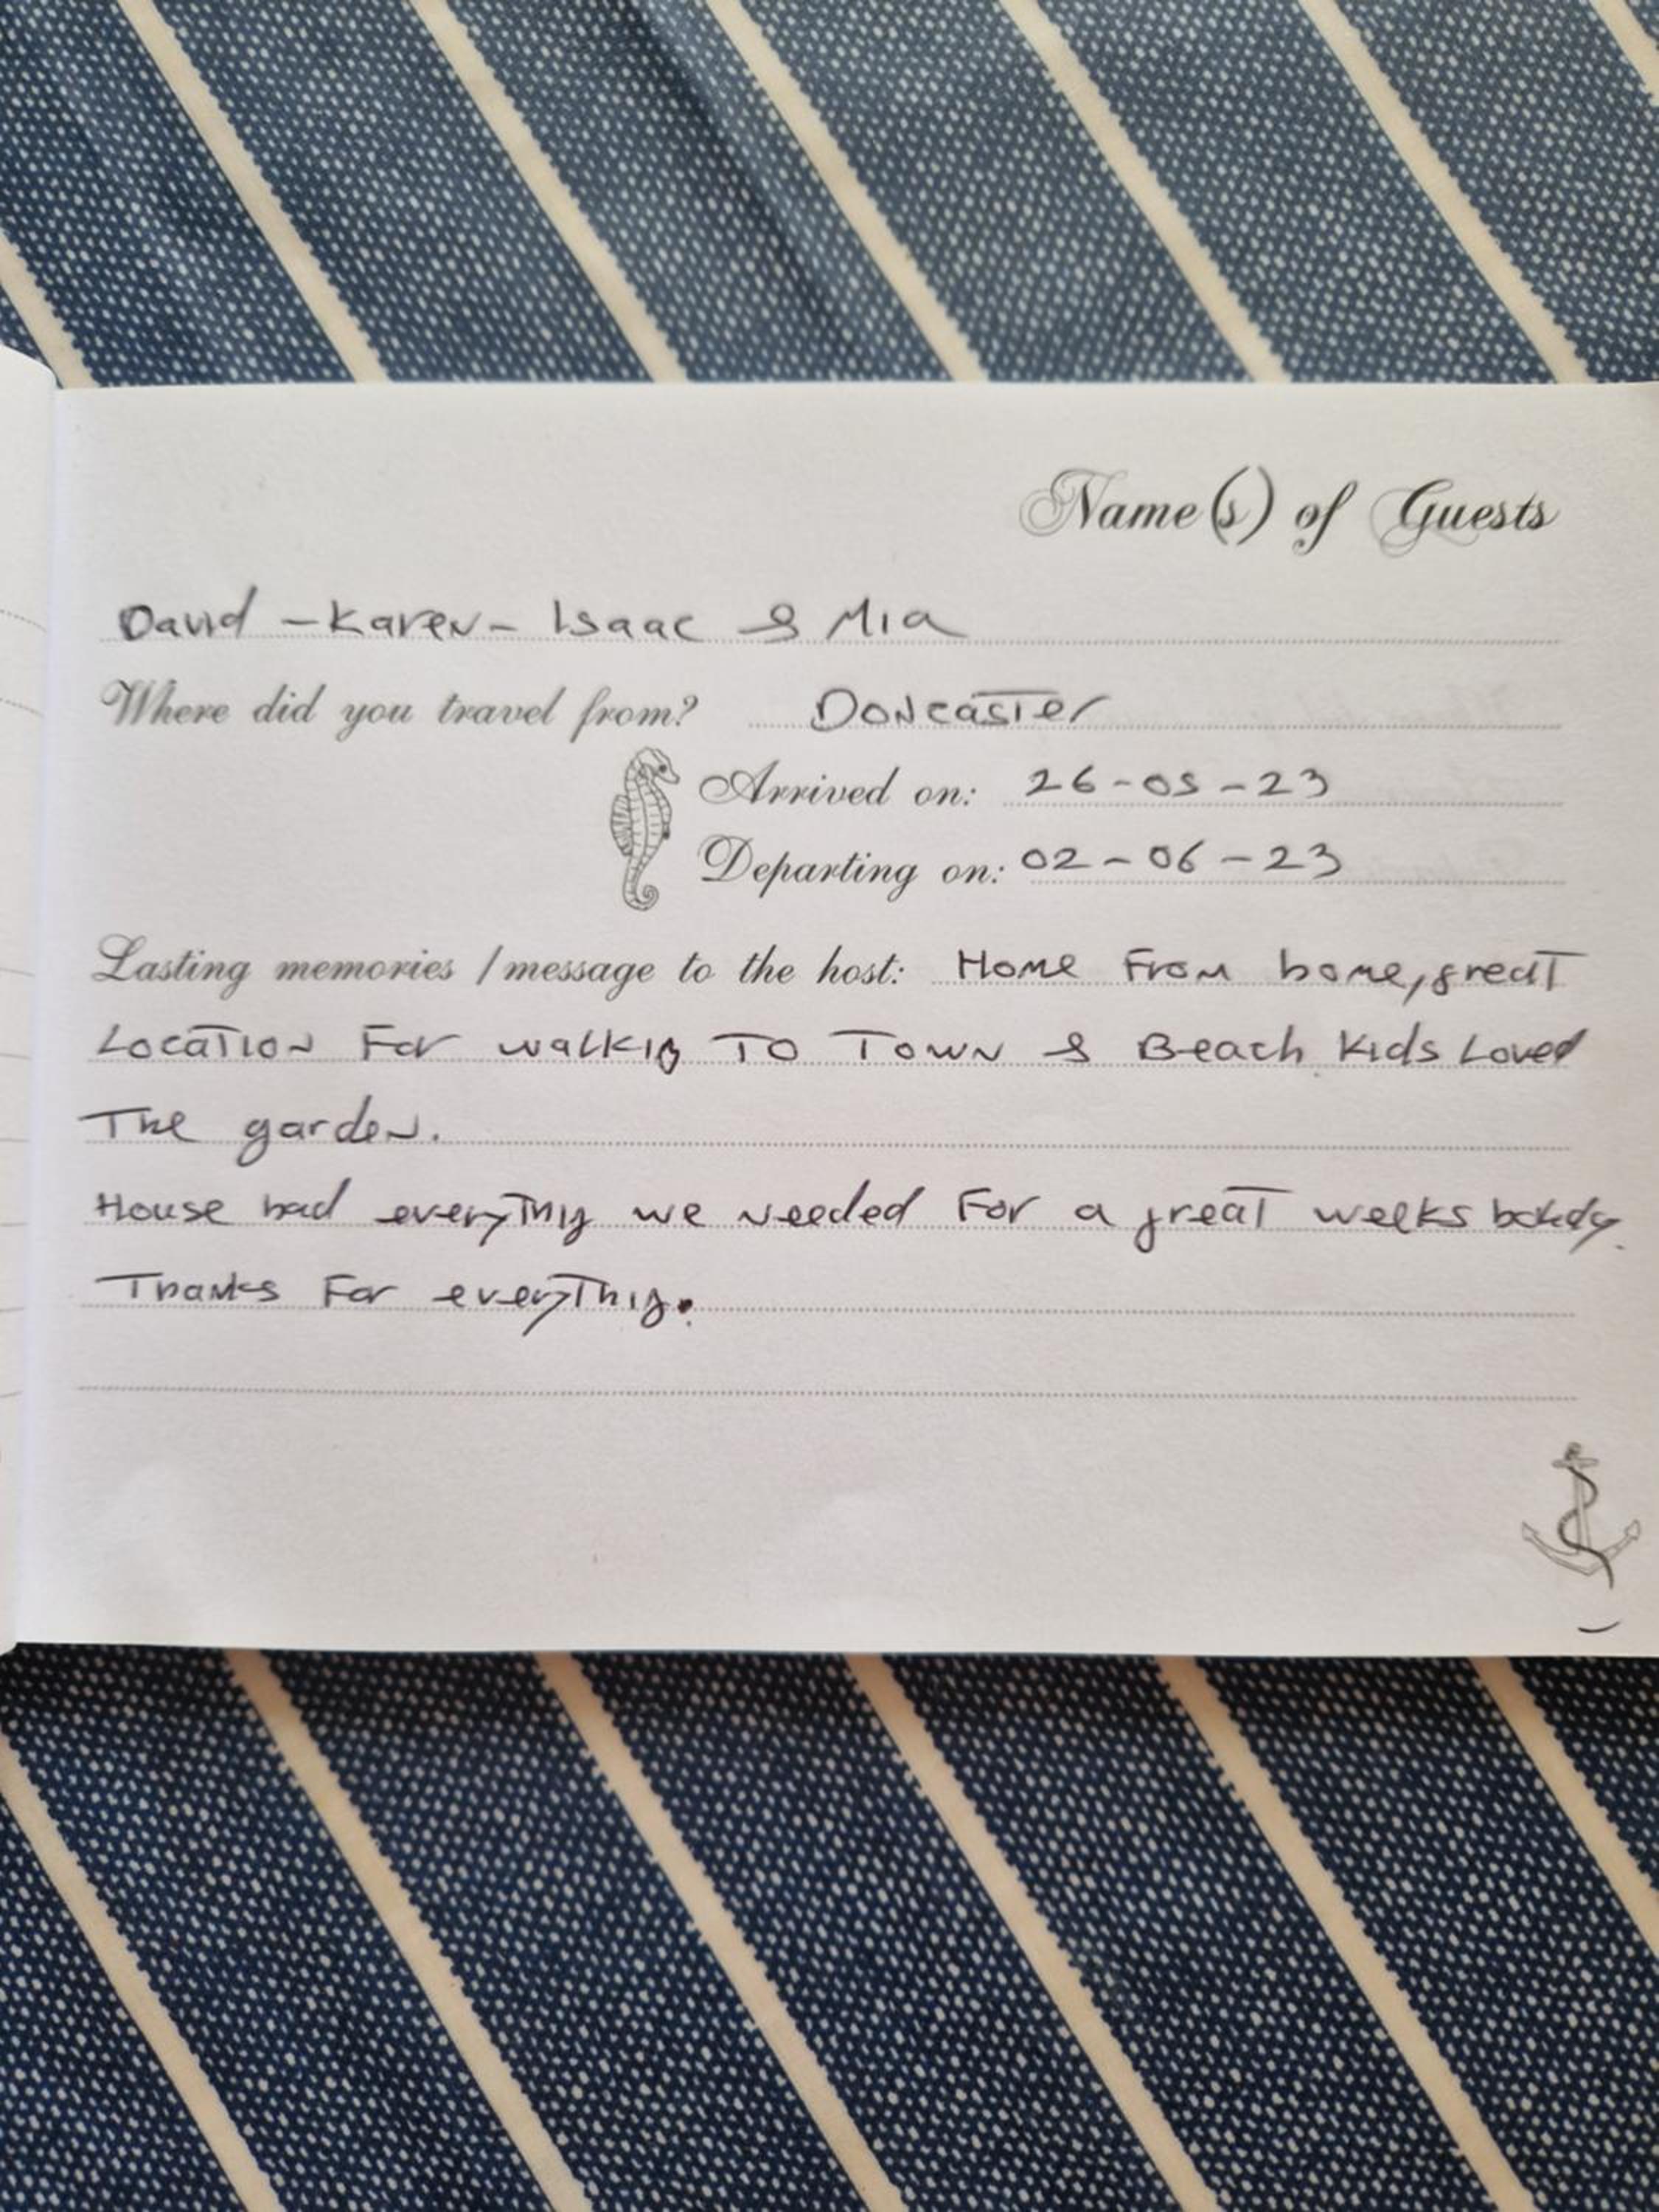 Name(s) of Guests
David - Karen - Isaac & Mia
Where did you travel from? Doncaster
Arrived on: 26-05-23
Departing on: 02-06-23
Lasting memories / message to the host: Home From home, great
Location For walking To Town & Beach. Kids Loved
The garden.
House had everything we needed For a great weeks holiday.
Thanks For everything.